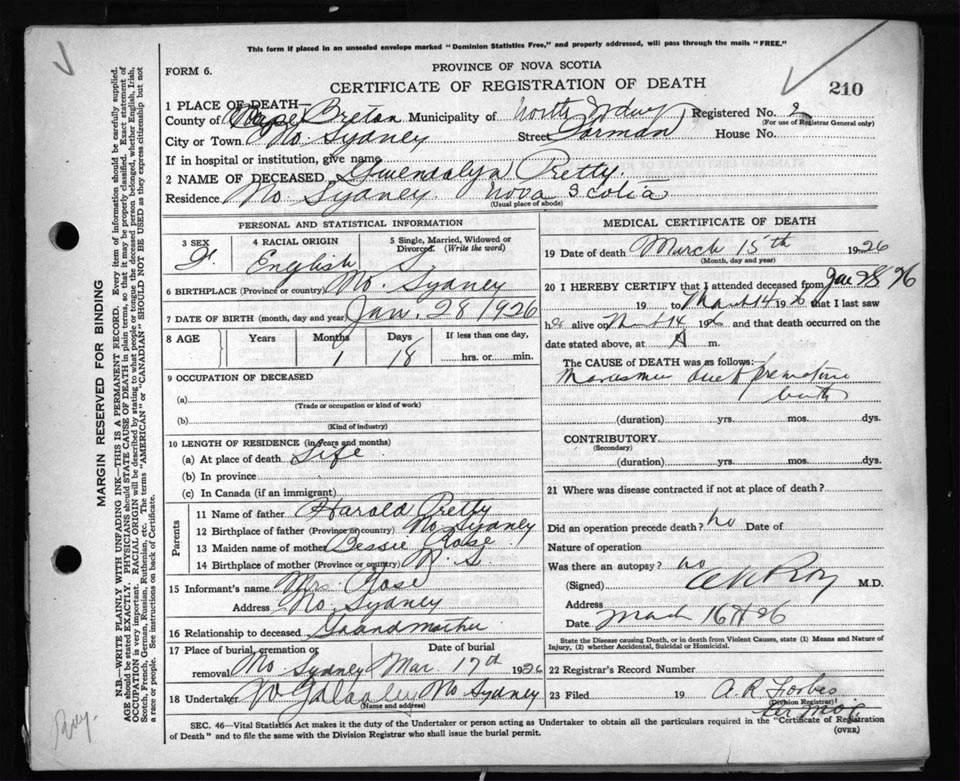 This form if placed in an unsealed envelope marked "Dominion Statistics Free," and properly addressed, will pass through the mails "FREE."
PROVINCE OF NOVA SCOTIA
FORM 6.
CERTIFICATE OF REGISTRATION OF DEATH
210
1 PLACE OF DEATH—
County of Cape Breton Municipality of Registered No. 2
(For use of Registrar General only)
City or Town No. Sydney Street House No.
If in hospital or institution, give name
2 NAME OF DECEASED Gwendolyn Pretty.
Residence No Sydney. Nova Scotia
(Usual place of abode)
PERSONAL AND STATISTICAL INFORMATION
3 SEX 4 RACIAL ORIGIN 5 Single, Married, Widowed or Divorced. (Write the word)
English S
6 BIRTHPLACE (Province or country) No. Sydney
7 DATE OF BIRTH (month, day and year) Jan. 28 1926
8 AGE Years Months Days If less than one day,
1 18 hrs. or min.
9 OCCUPATION OF DECEASED
(a)
(Trade or occupation or kind of work)
(b)
(Kind of industry)
10 LENGTH OF RESIDENCE (in years and months)
(a) At place of death Life
(b) In province
(c) In Canada (if an immigrant)
Parents
11 Name of father Harold Pretty
12 Birthplace of father (Province or country) No Sydney
13 Maiden name of mother Bessie Rose.
14 Birthplace of mother (Province or country) N. S.
15 Informant's name Mrs. Rose
Address No. Sydney
16 Relationship to deceased Grandmother
17 Place of burial, cremation or removal Date of burial
No Sydney Mar. 17th 1926
18 Undertaker No Sydney
(Name and address)
MEDICAL CERTIFICATE OF DEATH
19 Date of death March 15th 1926
(Month, day and year)
20 I HEREBY CERTIFY that I attended deceased from Jan 28 26
19 to March 14 1926 that I last saw
her alive on March 14 1926 and that death occurred on
date stated above, at m.
The CAUSE of DEATH was as follows:
Marasmus due to premature
birth
(duration) yrs. mos. dys.
CONTRIBUTORY
(Secondary)
(duration) yrs. mos. dys.
21 Where was disease contracted if not at place of death?
Did an operation precede death? no Date of
Nature of operation
Was there an autopsy? no
(Signed) M.D.
Address
Date March 16th 26
State the Disease causing Death, or in death from Violent Causes, state (1) Means and Nature of Injury, (2) whether Accidental, Suicidal or Homicidal.
22 Registrar's Record Number
23 Filed 19 A. R. Forbes
(Division Registrar)
(OVER)
SEC. 46—Vital Statistics Act makes it the duty of the Undertaker or person acting as Undertaker to obtain all the particulars required in the "Certificate of Registration
of Death" and to file the same with the Division Registrar who shall issue the burial permit.
MARGIN RESERVED FOR BINDING
N.B.—WRITE PLAINLY, WITH UNFADING INK—THIS IS A PERMANENT RECORD. Every item of information should be carefully supplied.
AGE should be stated EXACTLY. PHYSICIANS should STATE CAUSE OF DEATH in plain terms, so that it may be properly classified. Exact statement of
OCCUPATION is very important. RACIAL ORIGIN will be described by stating to what people or tongue the deceased person belonged, whether English, Irish,
Scotch, French, German, Russian, Ruthenian, etc. The terms "AMERICAN" or "CANADIAN" SHOULD NOT BE USED as they express citizenship but not
a race or people. See instructions on back of Certificate.